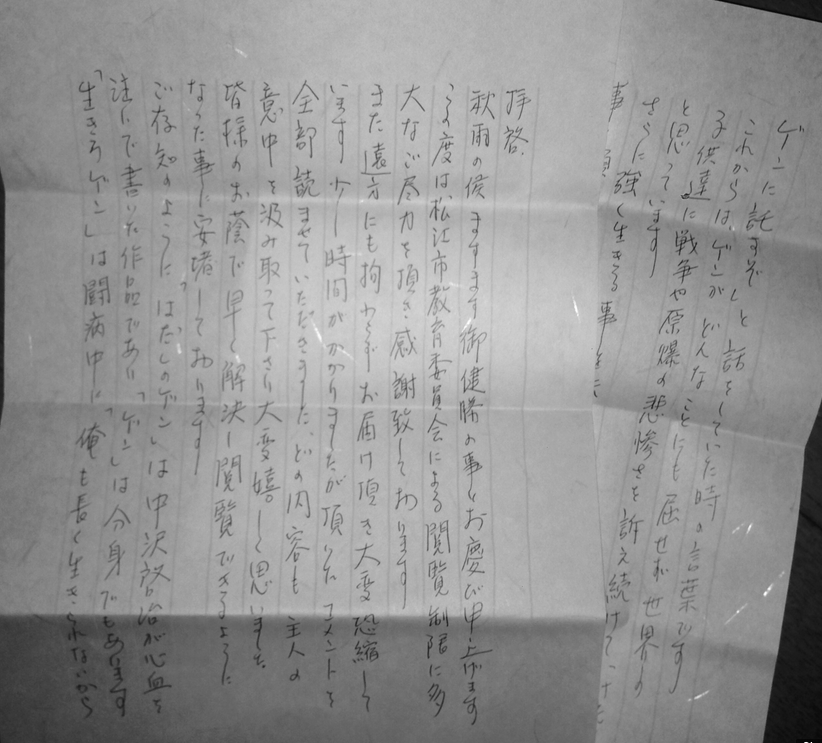 拝啓、
秋雨の侯ますます御健勝の事とお慶び申し上げます
この度は松江市教育委員会による閲覧制限に多
大なご尽力を頂き感謝致しております
また遠方にも拘わらずお届け頂き大変恐縮して
います 少し時間がかかりましたが頂いたコメントを
全部読ませていただきました、どの内容も主人の
意中を汲み取って下さり大変嬉しく思いました
皆様のお蔭で早く解決し閲覧できるように
なった事に安堵しております
ご存知のように「はだしのゲン」は中沢啓治が心血を
注いで書いた作品であり「ゲン」は分身でもあります
「生きろゲン」は闘病中に「俺も長く生きられないから
ゲンに託すぞ」と話をしていた時の言葉です
これからは、ゲンがどんなことにも屈せず世界の
子供達に戦争や原爆の悲惨さを訴え続けて
と思っています
さらに強く生きる事